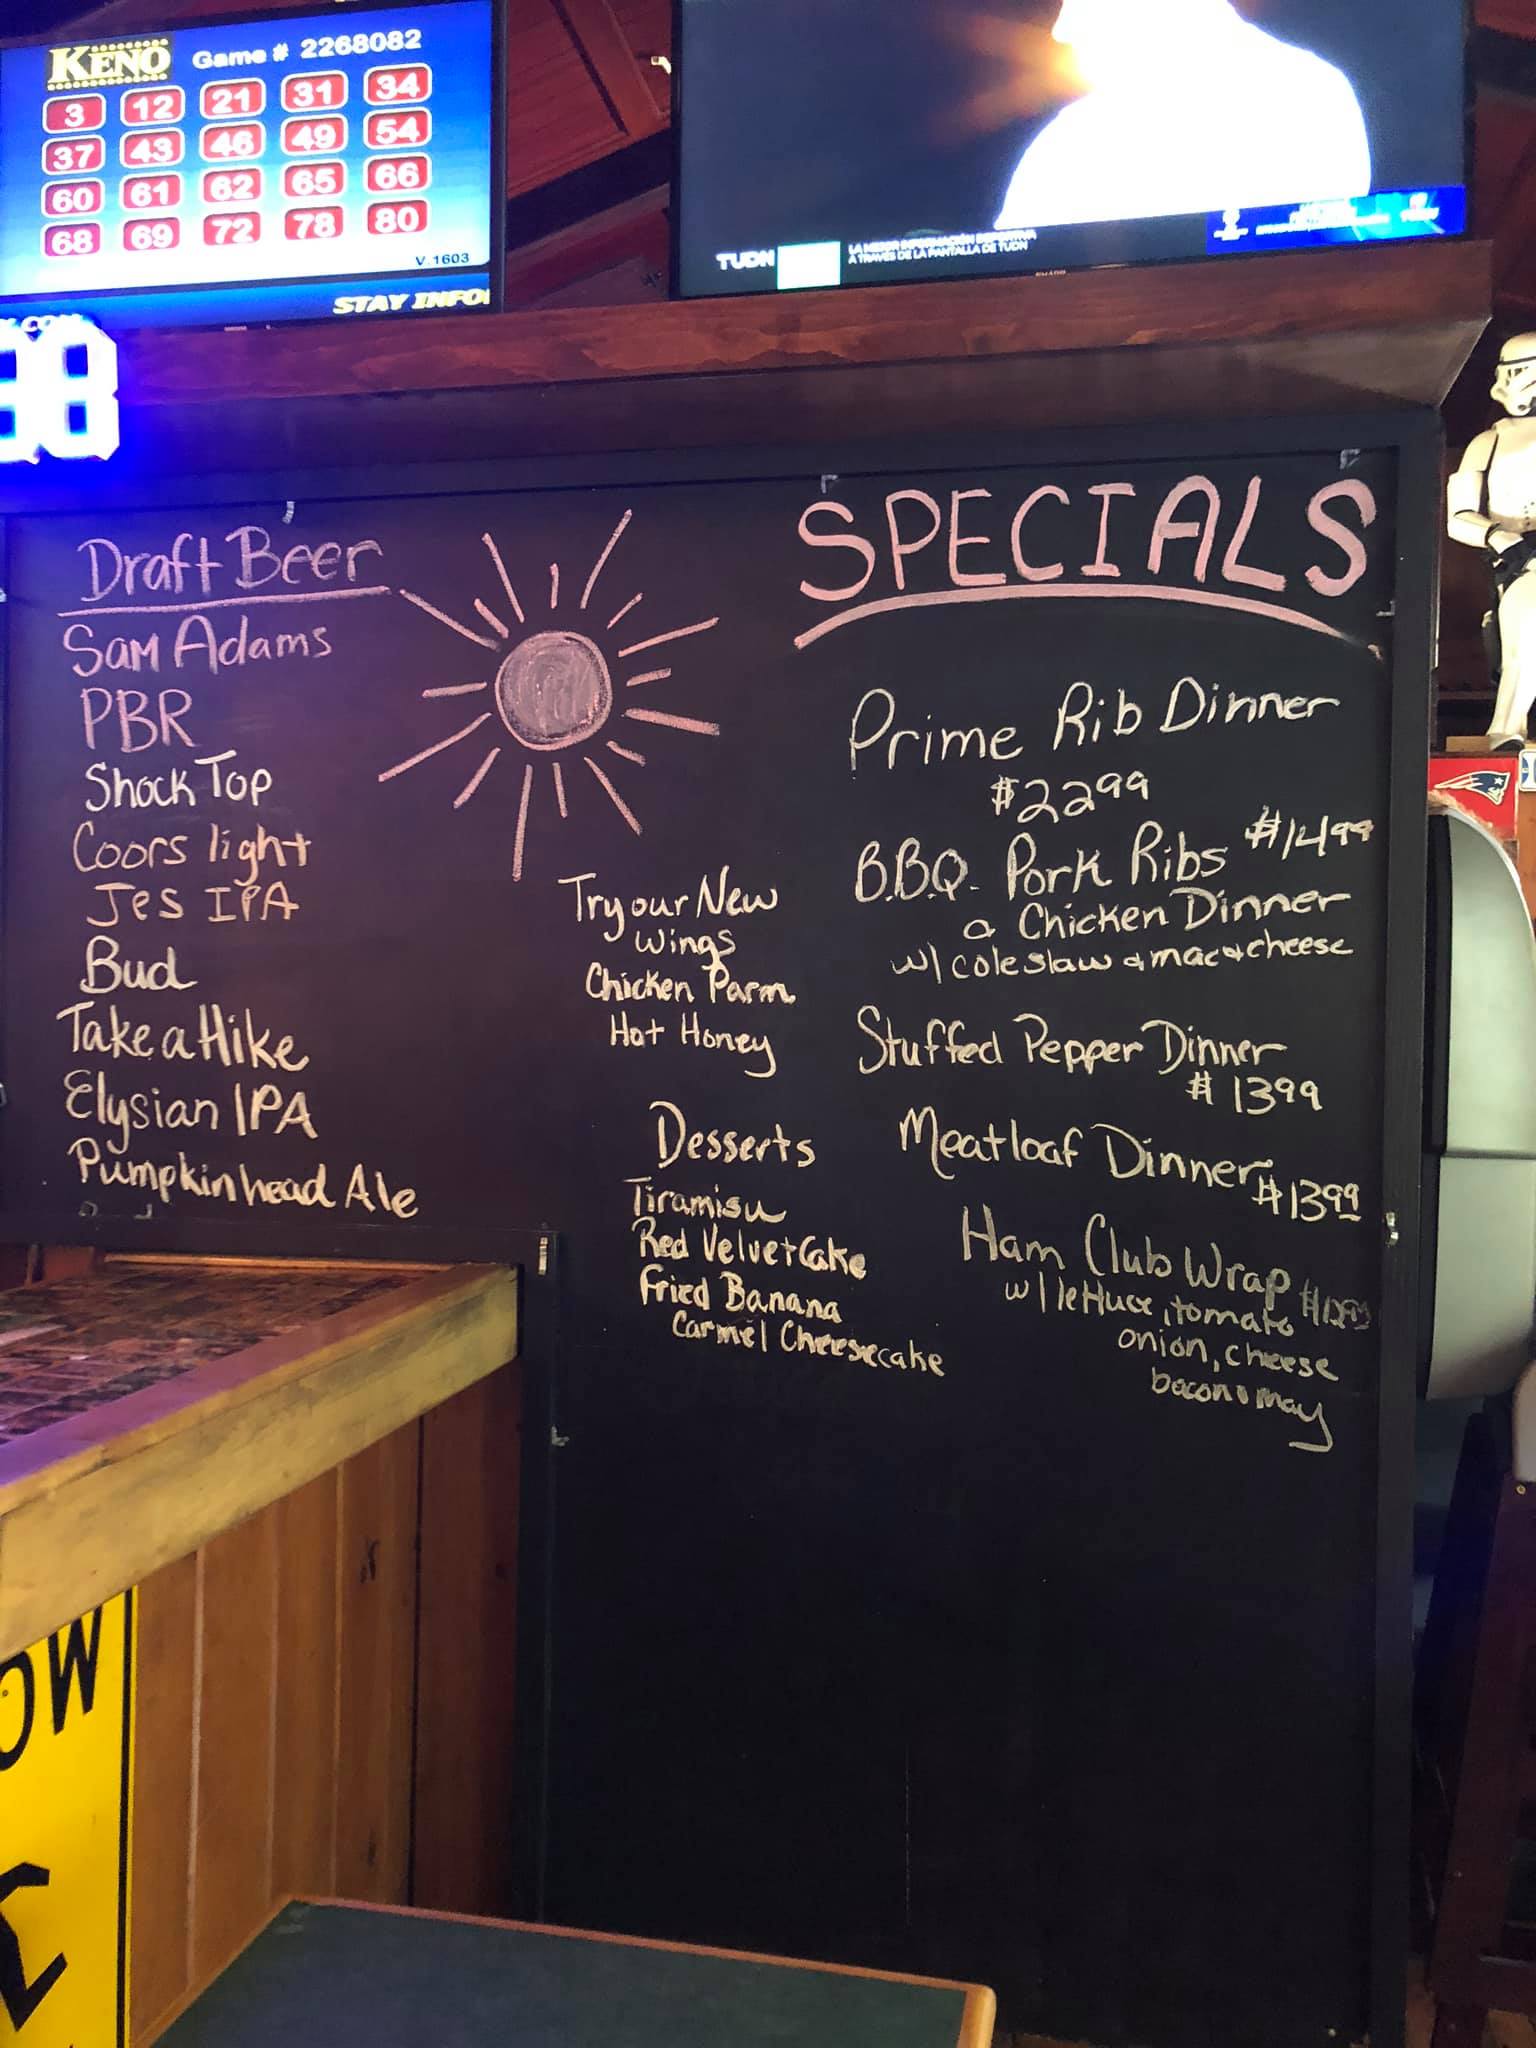 KENO Game # 2268082
3 12 21 31 34
37 43 46 49 54
60 61 62 65 66
68 69 72 78 80
V.1603
STAY INFO
TUDN
A TRAVÉS DE LA PANTALLA DE TUDN
Draft Beer
Sam Adams
PBR
Shock Top
Coors light
Jes IPA
Bud
Take a Hike
Elysian IPA
Pumpkinhead Ale
Try our New
Wings
Chicken Parm
Hot Honey
Desserts
Tiramisu
Red Velvet Cake
Fried Banana
Carmel Cheesecake
SPECIALS
Prime Rib Dinner
$22 99
B.B.Q. Pork Ribs $14 99
a Chicken Dinner
w/ coleslaw & mac & cheese
Stuffed Pepper Dinner
$ 13 99
Meatloaf Dinner $13 99
Ham Club Wrap
w/ lettuce, tomato
onion, cheese
bacon & may
OW